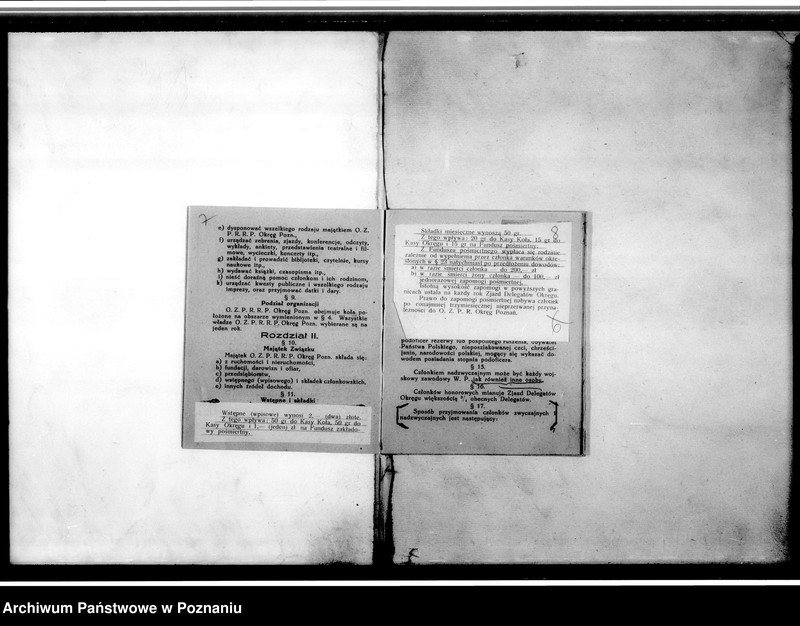 7
e) dysponować wszelkiego rodzaju majątkiem O. Z.
P. R. R. P. Okręg Pozn.,
f) urządzać zebrania, zjazdy, konferencje, odczyty,
wykłady, ankiety, przedstawienia teatralne i fil-
mowe, wycieczki, koncerty itp.,
g) zakładać i prowadzić bibljoteki, czytelnie, kursy
naukowe itp.,
h) wydawać książki, czasopisma itp.,
i) nieść doraźną pomoc członkom i ich rodzinom,
k) urządzać kwesty publiczne i wszelkiego rodzaju
imprezy, oraz przyjmować datki i dary.
§ 9.
Podział organizacji
O. Z. P. R. R. P. Okręg Pozn. obejmuje koła po-
łożone na obszarze wymienionym w § 4. Wszystkie
władze O. Z. P. R. R. P. Okręg Pozn. wybierane są na
jeden rok.
Rozdział II.
§ 10.
Majątek Związku
Majątek O. Z. P. R. R. P. Okręg Pozn. składa się:
a) z ruchomości i nieruchomości,
b) fundacji, darowizn i ofiar,
c) przedsiębiorstw,
d) wstępnego (wpisowego) i składek członkowskich.
e) innych źródeł dochodu.
§ 11.
Wstępne i składki
Wstępne (wpisowe) wynosi 2,— (dwa) złote.
Z tego wpływa: 50 gr do Kasy Koła, 50 gr do
Kasy Okręgu i 1,— (jeden) zł na Fundusz zakłado-
wy pośmiertny.
8
Składki miesięczne wynoszą 50 gr.
Z tego wpływa: 20 gr do Kasy Koła, 15 gr do
Kasy Okręgu i 15 gr na Fundusz pośmiertny.
Z Funduszu pośmiertnego wypłaca się rodzinie
zależnie od wypełnienia przez członka warunków okre-
ślonych w § 23 natychmiast po przedłożeniu dowodów:
a) w razie śmierci członka — do 200,— zł
b) w razie śmierci żony członka — do 100,— zł
jednorazowej zapomogi pośmiertnej.
Istotną wysokość zapomogi w powyższych gra-
nicach ustala na każdy rok Zjazd Delegatów Okręgu.
Prawo do zapomogi pośmiertnej nabywa członek
po conajmniej trzymiesięcznej nieprzerwanej przyna-
leżności do O. Z. P. R. Okręg Poznań.
6
podoficer rezerwy lub pospolitego ruszenia, obywatel
Państwa Polskiego, nieposzlakowanej czci, chrześci-
janin, narodowości polskiej, mogący się wykazać do-
wodem posiadania stopnia podoficera.
§ 15.
Członkiem nadzwyczajnym może być każdy woj-
skowy zawodowy W. P. jak również inne osoby.
§ 16.
Członków honorowych mianuje Zjazd Delegatów
Okręgu większością obecnych Delegatów.
§ 17.
Sposób przyjmowania członków zwyczajnych i
nadzwyczajnych jest następujący:
Archiwum Państwowe w Poznaniu